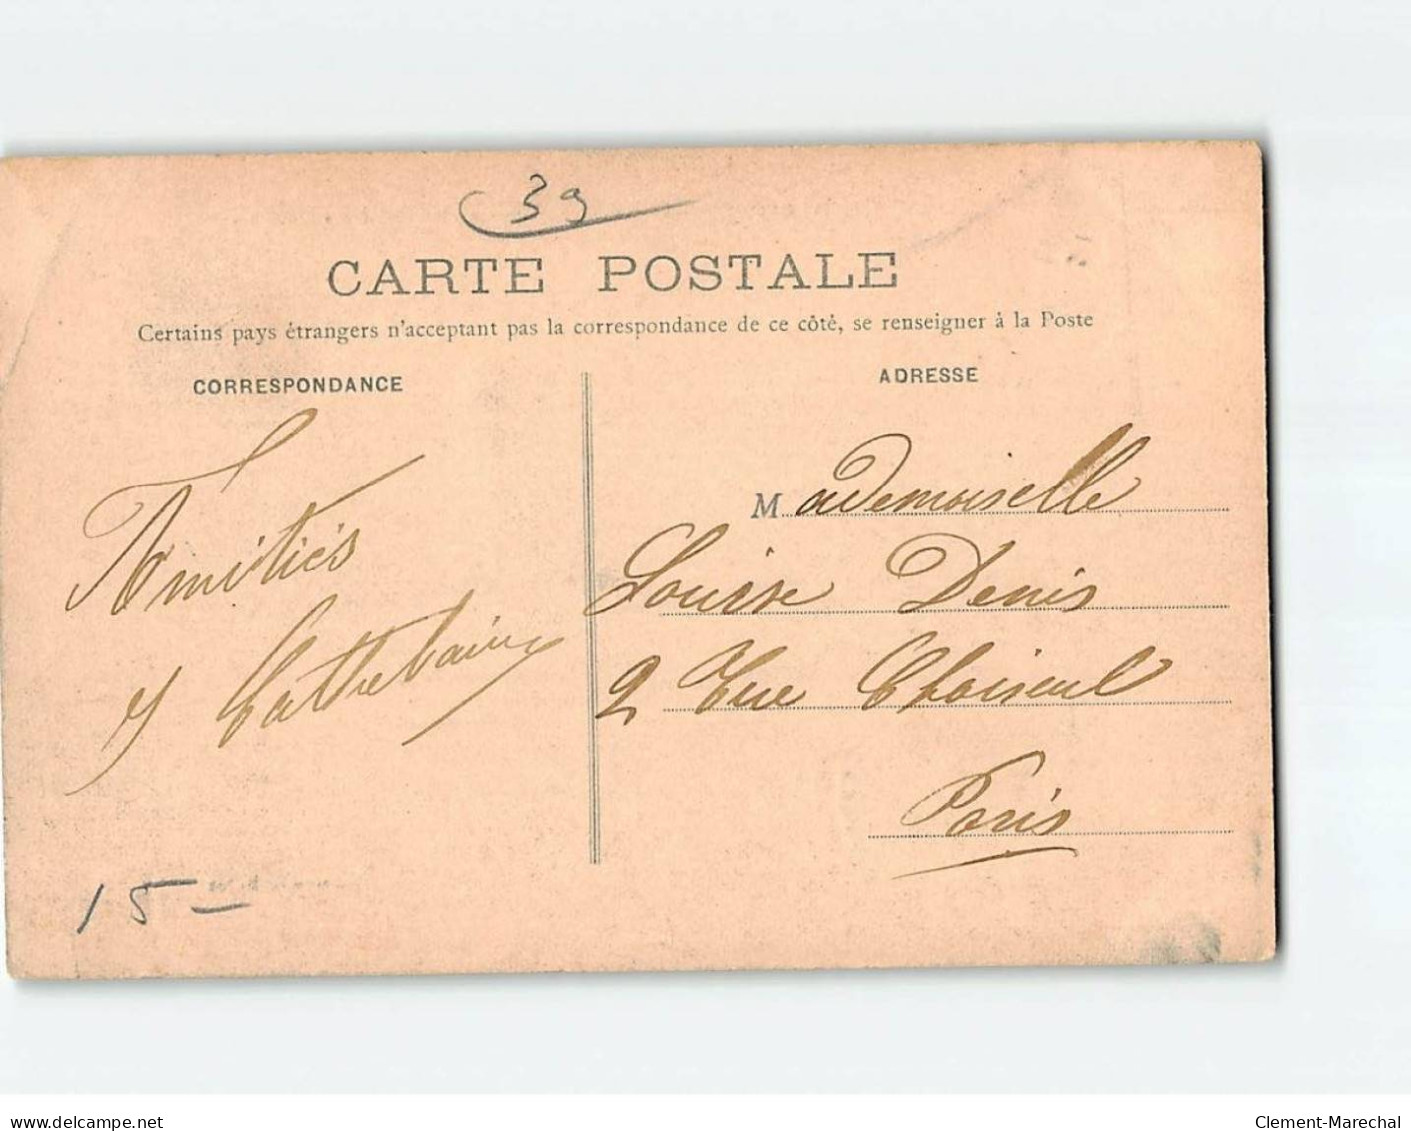 39
CARTE POSTALE
Certains pays étrangers n'acceptant pas la correspondance de ce côté, se renseigner à la Poste
CORRESPONDANCE
ADRESSE
Amitiés
Mademoiselle
Louise Denis
2 Rue Choiseul
Paris
15 —
www.delcampe.net
Clement-Marechal